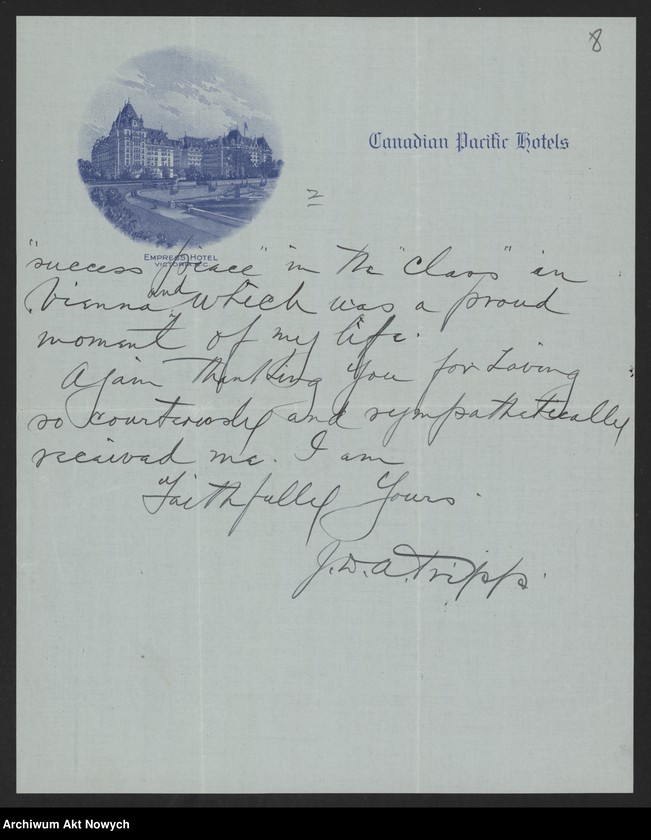 8
Canadian Pacific Hotels
EMPRESS HOTEL
VICTORIA, B.C.
2
"success piece" in the "class" in
Vienna and which was a proud
moment of my life.
Again thanking you for having
so courteously and sympathetically
received me. I am
Faithfully Yours.
J.D.A. Tripp.
Archiwum Akt Nowych